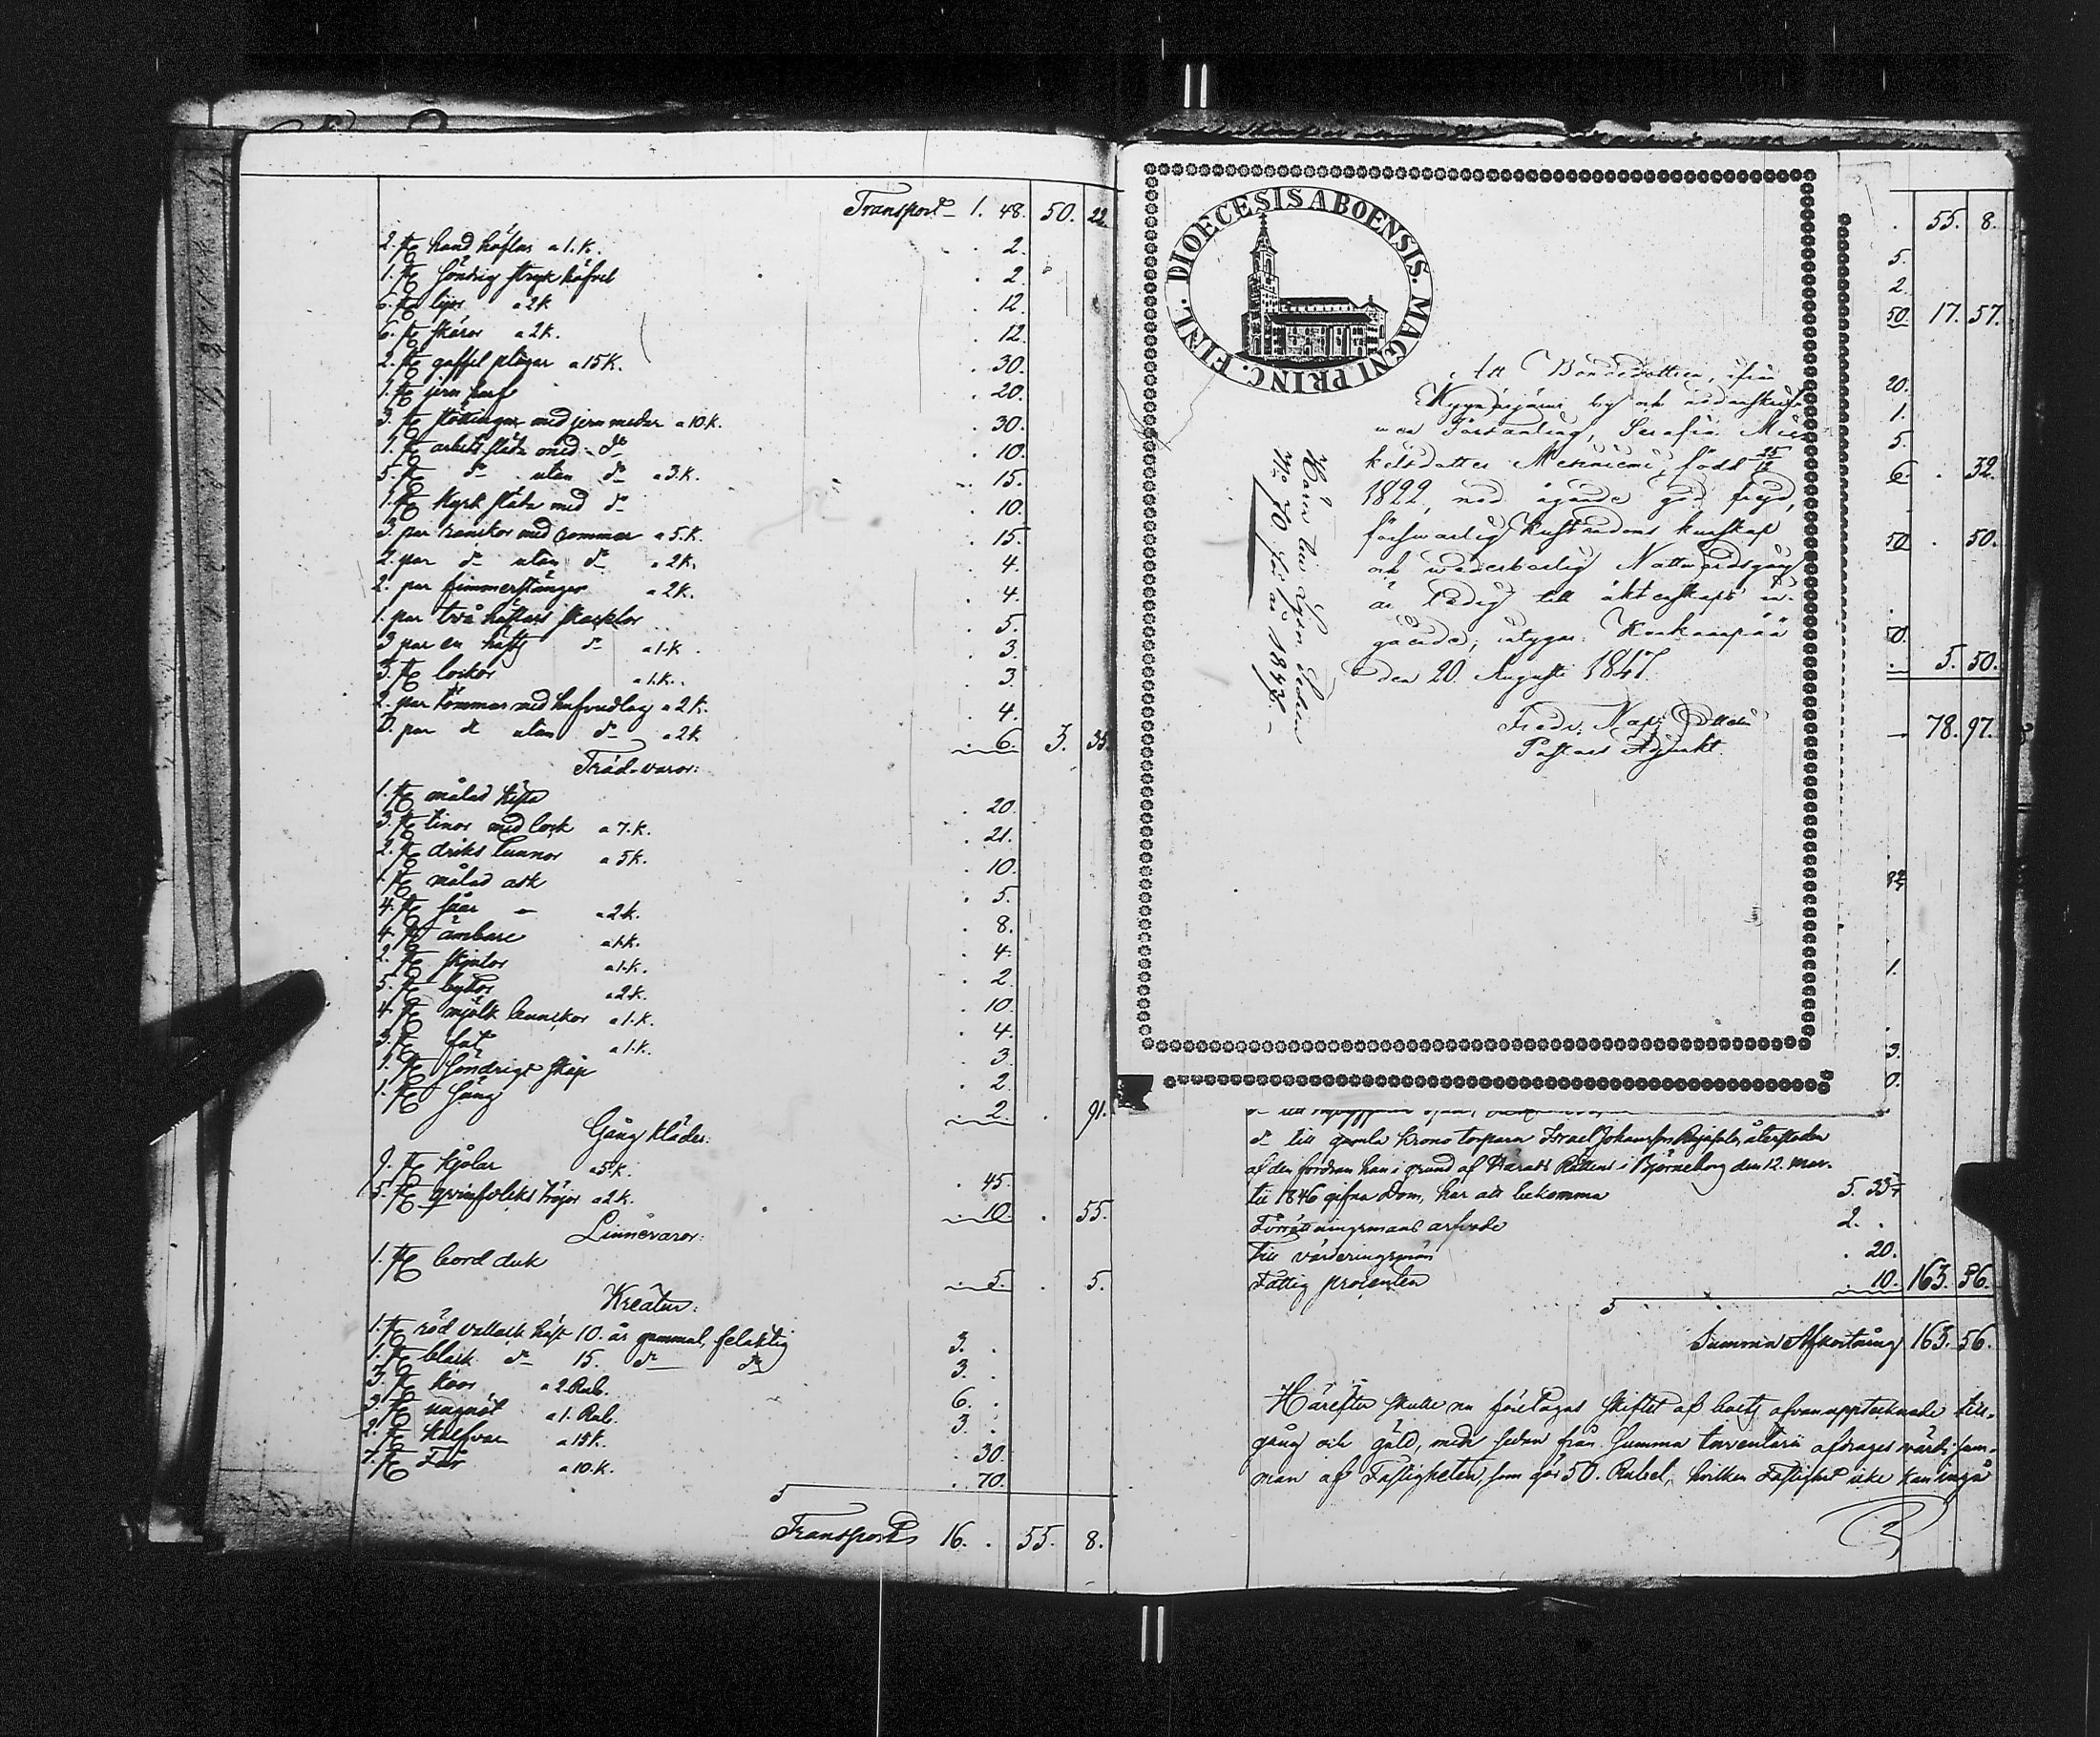 Transport 1. 48. 50. 22
2. st. hand höflar a 1. k. . 2.
1. st. söndrig stryk höfvel . 2.
6. st. lijor a 2 k . 12.
6. st. skäror a 2 k. . 12.
2. st. gaffel plogar a 15 k. . 30.
1. st. jern harf . 20.
3. st. stöttingar med jern medar a 10. k. . 30.
1. st. arbets släda med do . 10.
5. st. do utan do a 3. k. . 15.
1. st. kyrk släda med do . 10.
3. par rankor med rommar a 5. k. . 15.
2. par do utan do a 2 k. . 4.
2. par timmerstänger a 2 k. . 4.
1. par två häftars skacklor . 5.
3 par en häfts do a 1. k . 3.
3. st. lockor a 1. k. . 3.
2. par tömmar med hufvudlag a 2 k. . 4.
3. par do utan do a 2 k . 6. 3. 35.
Träd-varor:
1. st. målad kista . 20.
3. st. tinor med lock a 7. k. . 21.
2. st. driks tunnor a 5 k. . 10.
1. st. målad ask . 5.
4. st. såar a 2 k. . 8.
4. st. ämbare a 1. k. . 4.
2. st. skjutor a 1. k. . 2.
5. st. byttor a 2 k. . 10.
4. st. mjölk bunckor a 1. k. . 4.
3. st. fat a 1. k. . 3.
1. st. söndrigt skåp . 2.
1. st. säng . 2. . 91.
Gång kläder:
9. st. kjolar a 5 k. . 45.
5. st. qvinfolks tröjor a 2 k. . 10. . 55.
Linnevaror:
1. st. bord duk . 5. . 5.
Kreatur:
1. st. röd vallack häst 10. år gammal, felaktig 3. .
1. st. black do 15. do do 3. .
3. st. koor a 2. Rub. 6. .
3. st. ungnöt a 1. Rub. 3. .
2. st. kalfvar a 15 k. . 30.
7. st. Får a 10. k. . 70.
Transport 16. . 55. 8.
DIOECESIS ABOENSIS. MAGNI PRINC. FINL.
Att Bondedottren, ifrån
by och
Församling, Serafia Mic
kelsdotter Meriniemi, född 25/12
1822, med ägande god frejd,
försvarlig Christendoms kunskap
och wederbörlig Nattvardsgång
är ledig till äktenskaps in-
gående; intygar: Kankaanpää
den 20. Augusti 1847.
Fredr. Nap.
Pastors Adjunkt.
No 70 för år 1847.
. 55. 8.
5.
2.
50. 17. 57.
20.
1.
5.
6. . 32.
50 . 50.
50.
. 5. 50.
78. 97.
1.
3.
0.
do till gamla Krono torparen Israel Johansson återstoden
af den fordran han i grund af Härads Rättens i Björneborg den 12. Mar-
tii 1846 gifna Dom, har att bekomma 5. 33
Förrättningsmans arfvode 2. .
till värderingsmän . 20.
Fattig procenten . 10. 163. 56.
Summa Afkortning 163. 56.
Härefter skulle nu företagas skiftet af boets ofvanupptecknade till-
gång och gäld, men sedan från Summa Inventarii afdrages värdi sum-
man af Fastigheten, som gör 50. Rubel, hvilken Fastighet icke kan ingå